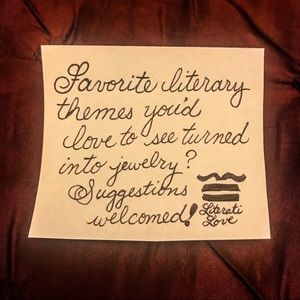 Favorite literary
themes you'd
love to see turned
into jewelry?
Suggestions
welcomed!
Literati
Love